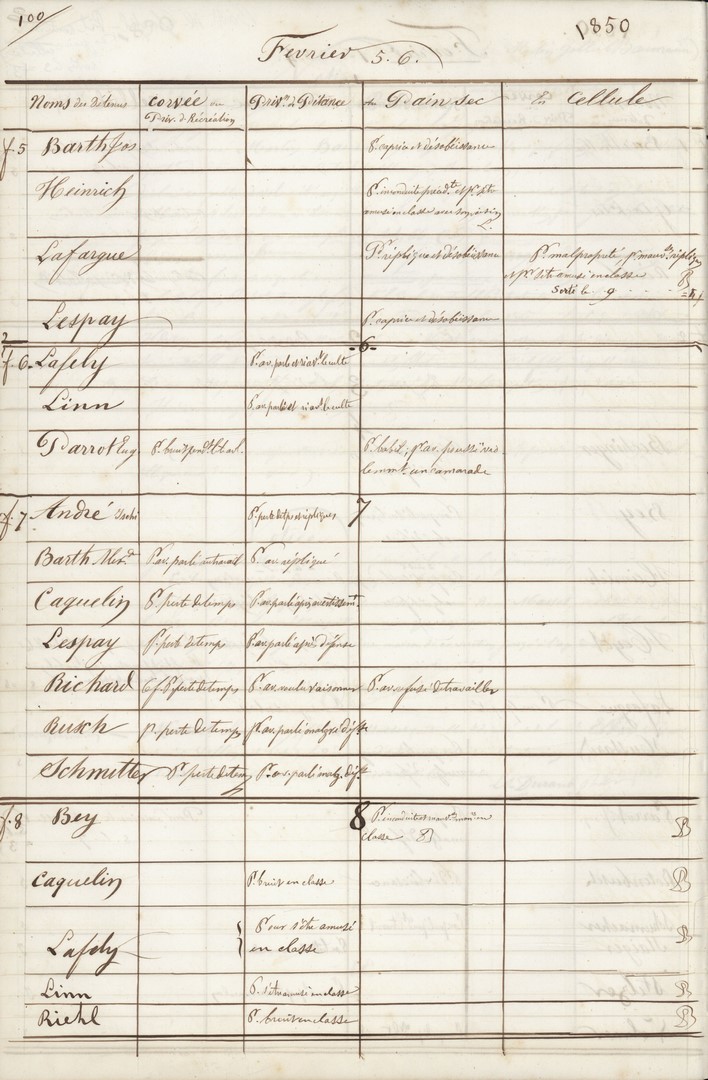 100
1850
Fevrier 5. 6.
Noms des Détenus corvée ou Priv.on à Pitance au Pain sec En Cellule
Priv. d. Récréation
f. 5 Barth Jos. P. caprice et désobéissance
Heinrich P. inconduite pend.t et p. s'être
amusé en classe avec son voisin
Lafargue P. réplique et désobéissance P. malpropreté, p. mauv. réplique
et p. s'être amusé en classe B
Sorti le 9
Lespay P. caprice et désobéissance
2 -6-
f. 6. Lafely P. av. parlé et ri av.t le culte
Linn P. av. parlé et ri av.t le culte
Parrot Eug P. bruit pend.t le trav. P. babil; p. av. poussé
un camarade
f. 7 André 7
Barth Alex.d P. av. parlé au travail P. av. répliqué
Caquelin P. perte de temps P. av. parlé après avertissem.t
Lespay P. perte de temps P. av. parlé après défense
Richard P. perte de temps P. av. voulu raisonner P. av. refusé de travailler
Rusch p. perte de temps P. av. parlé malgré déf.se
Schmitter P. perte de temps P. av. parlé malg. déf.se
f. 8 Bey 8 P. inconduite en
classe B B
Caquelin P. bruit en classe B
Pour s'être amusé
Lafely en classe B
Linn P. s'être amusé en classe B
Riehl P. bruit en classe B